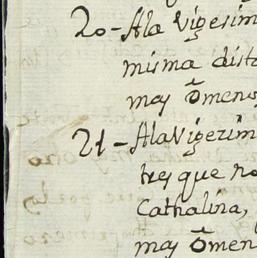 20 - Ala Vigesim
misma dist
mas õ meno
21 - Ala Vigezim
tres que no
Cathalina,
mas õ men